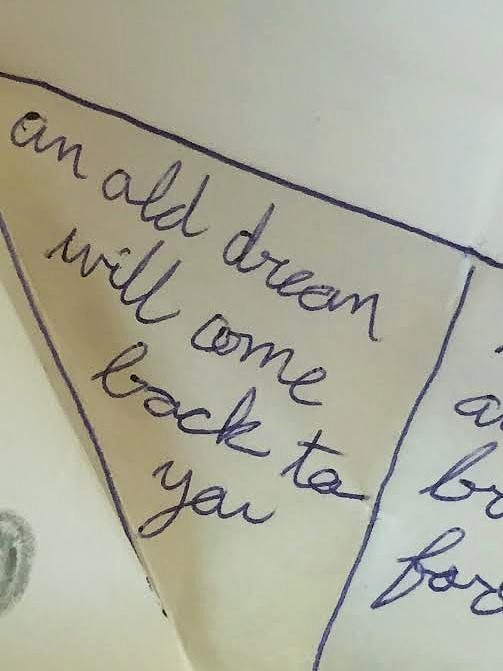 an old dream
will come
back to
you
a
br
for